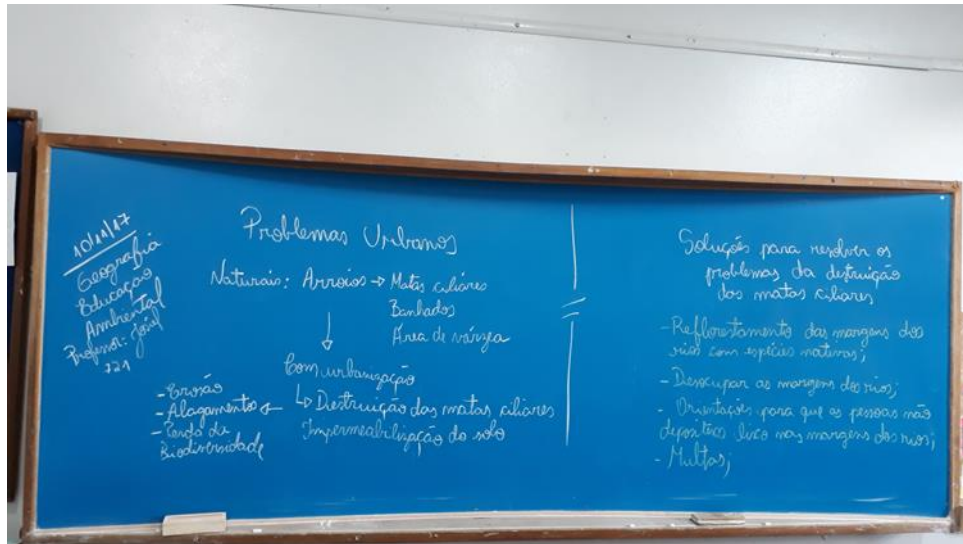 10/11/17
Geografia
Educação
Ambiental
Professor: Joel
121
Problemas Urbanos
Naturais: Arroios → Matas ciliares
Banhados
Área de várzea
↓
Com urbanização
↳ Destruição das matas ciliares
Impermeabilização do solo
- Erosão
- Alagamento ←
- Perda da
Biodiversidade
Soluções para resolver os
problemas da destruição
das matas ciliares
- Reflorestamento das margens dos
rios com espécies nativas;
- Desocupar as margens dos rios;
- Orientações para que as pessoas não
depositem lixo nas margens dos rios;
- Multas;